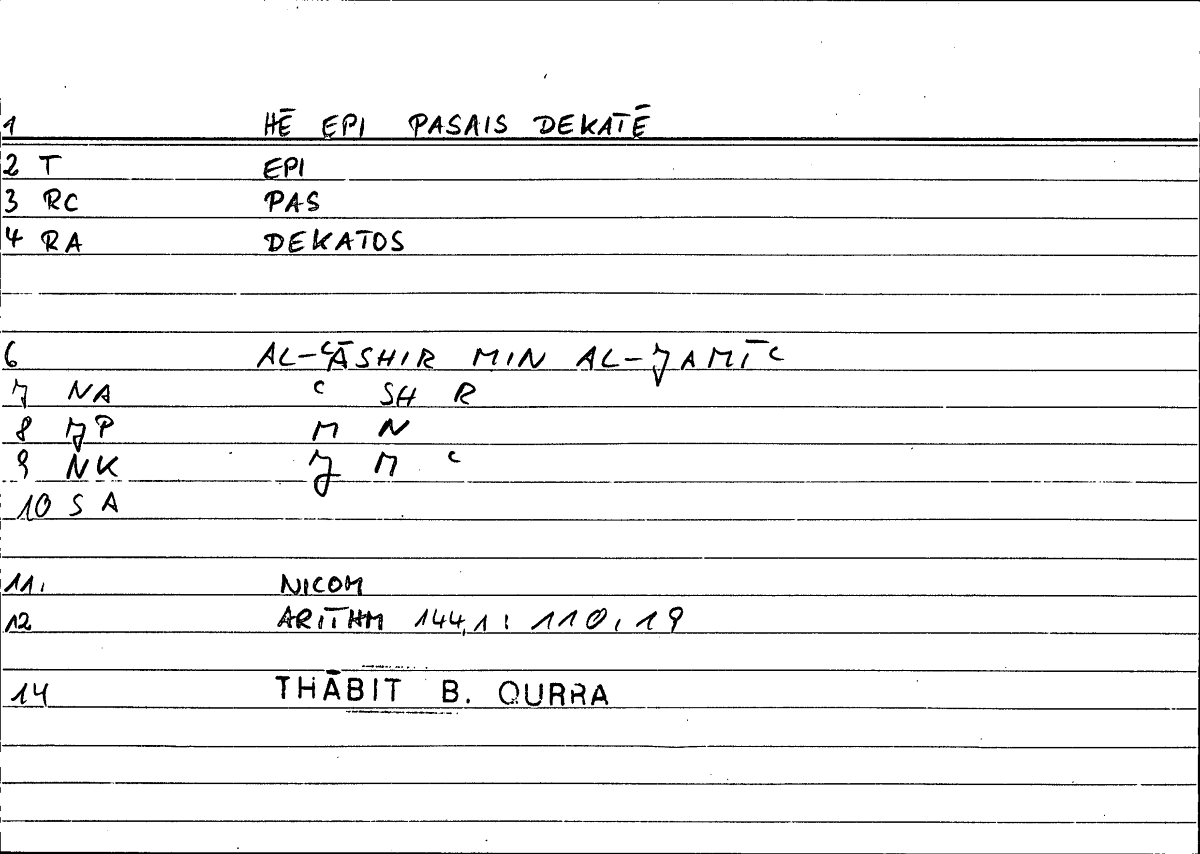 1 HĒ EPI PASAIS DEKATĒ
2 T EPI
3 RC PAS
4 RA DEKATOS
6 AL-ʿĀSHIR MIN AL-JAMĪʿ
7 NA ʿ SH R
8 JP M N
9 NK J M ʿ
10 S A
11. NICOM
12 ARITHM 144,1 : 110,19
14 THĀBIT B. QURRA